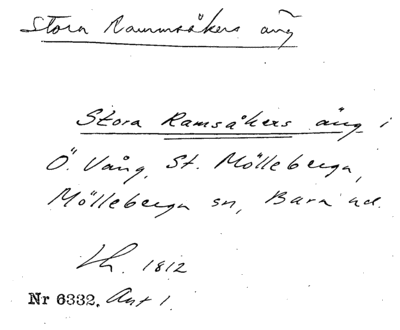 Stora Rammsåkers äng
Stora Ramsåkers äng i
Ö. Vång, St. Mölleberga,
Mölleberga sn, Bara hd.
Lh. 1812
Nr 6332. Akt 1.